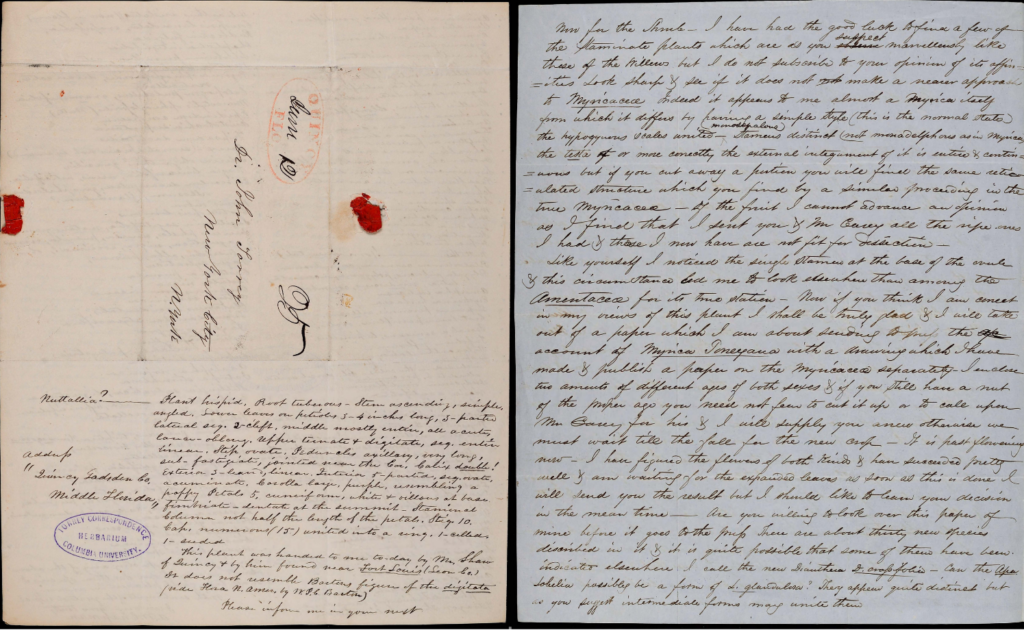 Jan 12
25
Dr. John Torrey
New York City
N. York
Nuttallia?
Plant hispid. Root tuberous - Stem ascending, simple,
angled. Lower leaves on petioles 3-4 inches long, 5-parted
lateral seg. 2-cleft, middle mostly entire, all acute,
lance-oblong. Upper ternate & digitate, seg. entire
linear. Stip. ovate. Peduncles axillary, very long,
sub-fastigiate, jointed near the Cor. Calix double!
Exterior 3-leav'd, linear, inner 5-parted, seg. ovate,
acuminate. Corolla large, purple, resembling a
poppy Petals 5, cuneiform, white & villous at base
fimbriate-dentate at the summit - Staminal
Column not half the length of the petals. Stig. 10.
Caps. numerous (15) united into a ring. 1-celled
1-seeded
This plant was handed to me to day by Mr. Shaw
of Quincy & by him found near Fort Louis (Leon Co.)
It does not resemble Bartons figure of the digitata
(vide Flora N. Amer. by W.P.C. Barton)
Please inform me in your next
address
" Quincy Gadsden Co,
Middle Florida,
TORREY CORRESPONDENCE
HERBARIUM
COLUMBIA UNIVERSITY.
Now for the Shrub - I have had the good luck to find a few of
the staminate plants which are as you suspect marvellously like
those of the Willows but I do not subscribe to your opinion of its affin-
=ities Look sharp & see if it does not make a nearer approach
to Myricaceæ Indeed it appears to me almost a Myrica itself
from which it differs by having a simple style (this is the normal state)
the hypogynous scales united - Stamens distinct (not monadelphous as in Myrica
the testa or more correctly the external integument of it is entire & contin-
=uous but if you cut away a portion you will find the same retic-
=ulated structure which you find by a similar proceeding in the
true Myricaceæ - Of the fruit I cannot advance an opinion
as I find that I sent you & Mr Carey all the ripe ones
I had & those I now have are not fit for dissection -
Like yourself I noticed the single stamens at the base of the ovule
& this circumstance led me to look elsewhere than among the
Amentaceæ for its true station - Now if you think I am correct
in my views of this plant I shall be truly glad & I will take
out of a paper which I am about sending to you, the
account of Myrica Torreyana with a drawing which I have
made & publish a paper on the Myricaceæ separately - I enclose
two aments of different ages of both sexes & if you still have a nut
of the proper age you need not fear to cut it up or to call upon
Mr Carey for his & I will supply you anew otherwise we
must wait till the fall for the new crop - It is past flowering
now - I have figured the flowers of both kinds & have succeeded pretty
well & am waiting for the expanded leaves as soon as this is done I
will send you the result but I should like to learn your decision
in the mean time - Are you willing to look over this paper of
mine before it goes to the press there are about thirty new species
described in it & it is quite possible that some of them have been
indicated elsewhere I call the new Dianthera D. crassifolia - Can the
Lobelia possibly be a form of L. glandulosa? They appear quite distinct but
as you suggest intermediate forms may unite them